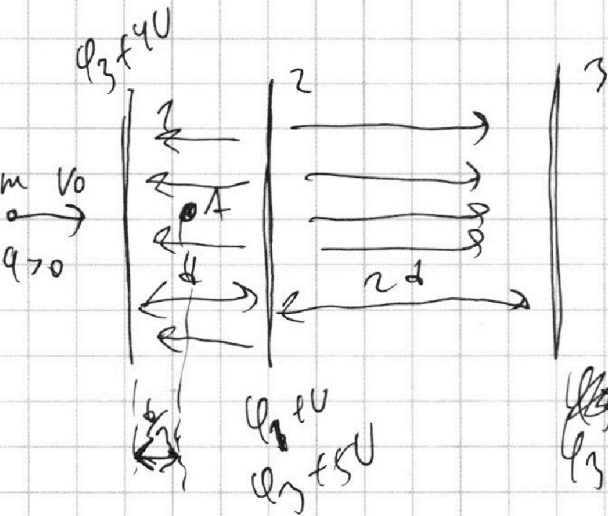 φ₃+4U
1
2
3
m V₀
q>0
A
d
2d
φ₁+U
φ₃+5U
φ₃